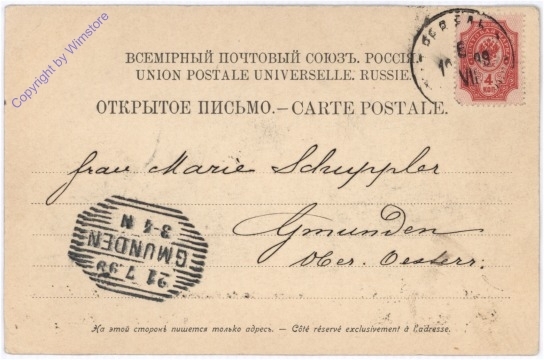 Copyright by Wimstore
ВСЕМІРНЫЙ ПОЧТОВЫЙ СОЮЗЪ. РОССІЯ.
UNION POSTALE UNIVERSELLE. RUSSIE.
ОТКРЫТОЕ ПИСЬМО.—CARTE POSTALE.
4
КОП
VII
Frau Marie Schuppler
Gmunden
Ober. Oesterr.
GMUNDEN
21 7 99
3-4 N
На этой сторонѣ пишется только адресъ. — Côté réservé exclusivement à l'adresse.